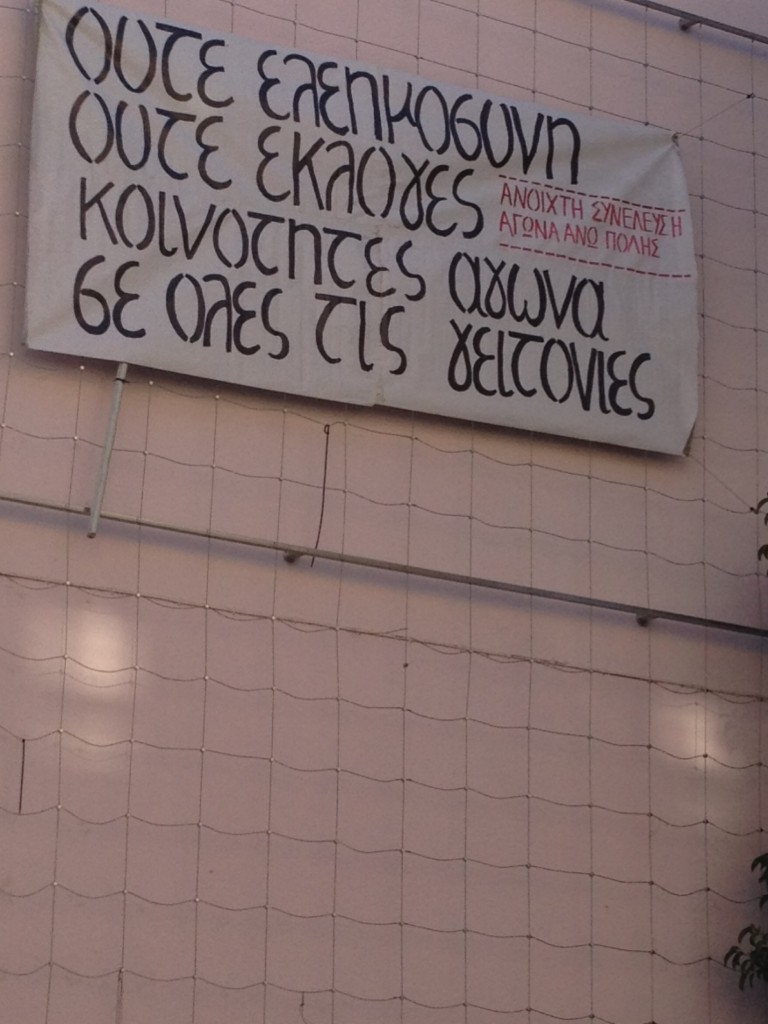 ουτε ελεημοσυνη
ουτε εκλογες
ΑΝΟΙΧΤΗ ΣΥΝΕΛΕΥΣΗ
ΑΓΩΝΑ ΑΝΩ ΠΟΛΗΣ
κοινοτητες αγωνα
σε ολες τις γειτονιες